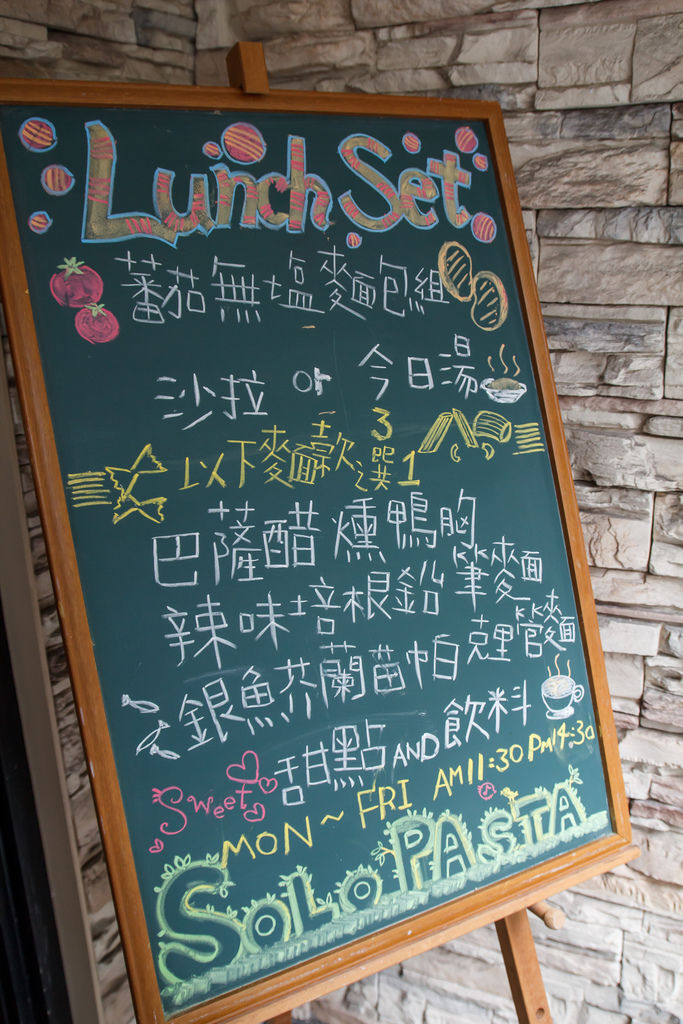 Lunch Set
蕃茄無塩麵包組
沙拉 or 今日湯
以下麥面款3選1
巴薩醋燻鴨胸
辣味培根鉛筆麵
銀魚芥蘭苗帕克里管麵
甜點 AND 飲料
Sweet
MON~FRI AM11:30 Pm14:30
SoLo PASTA